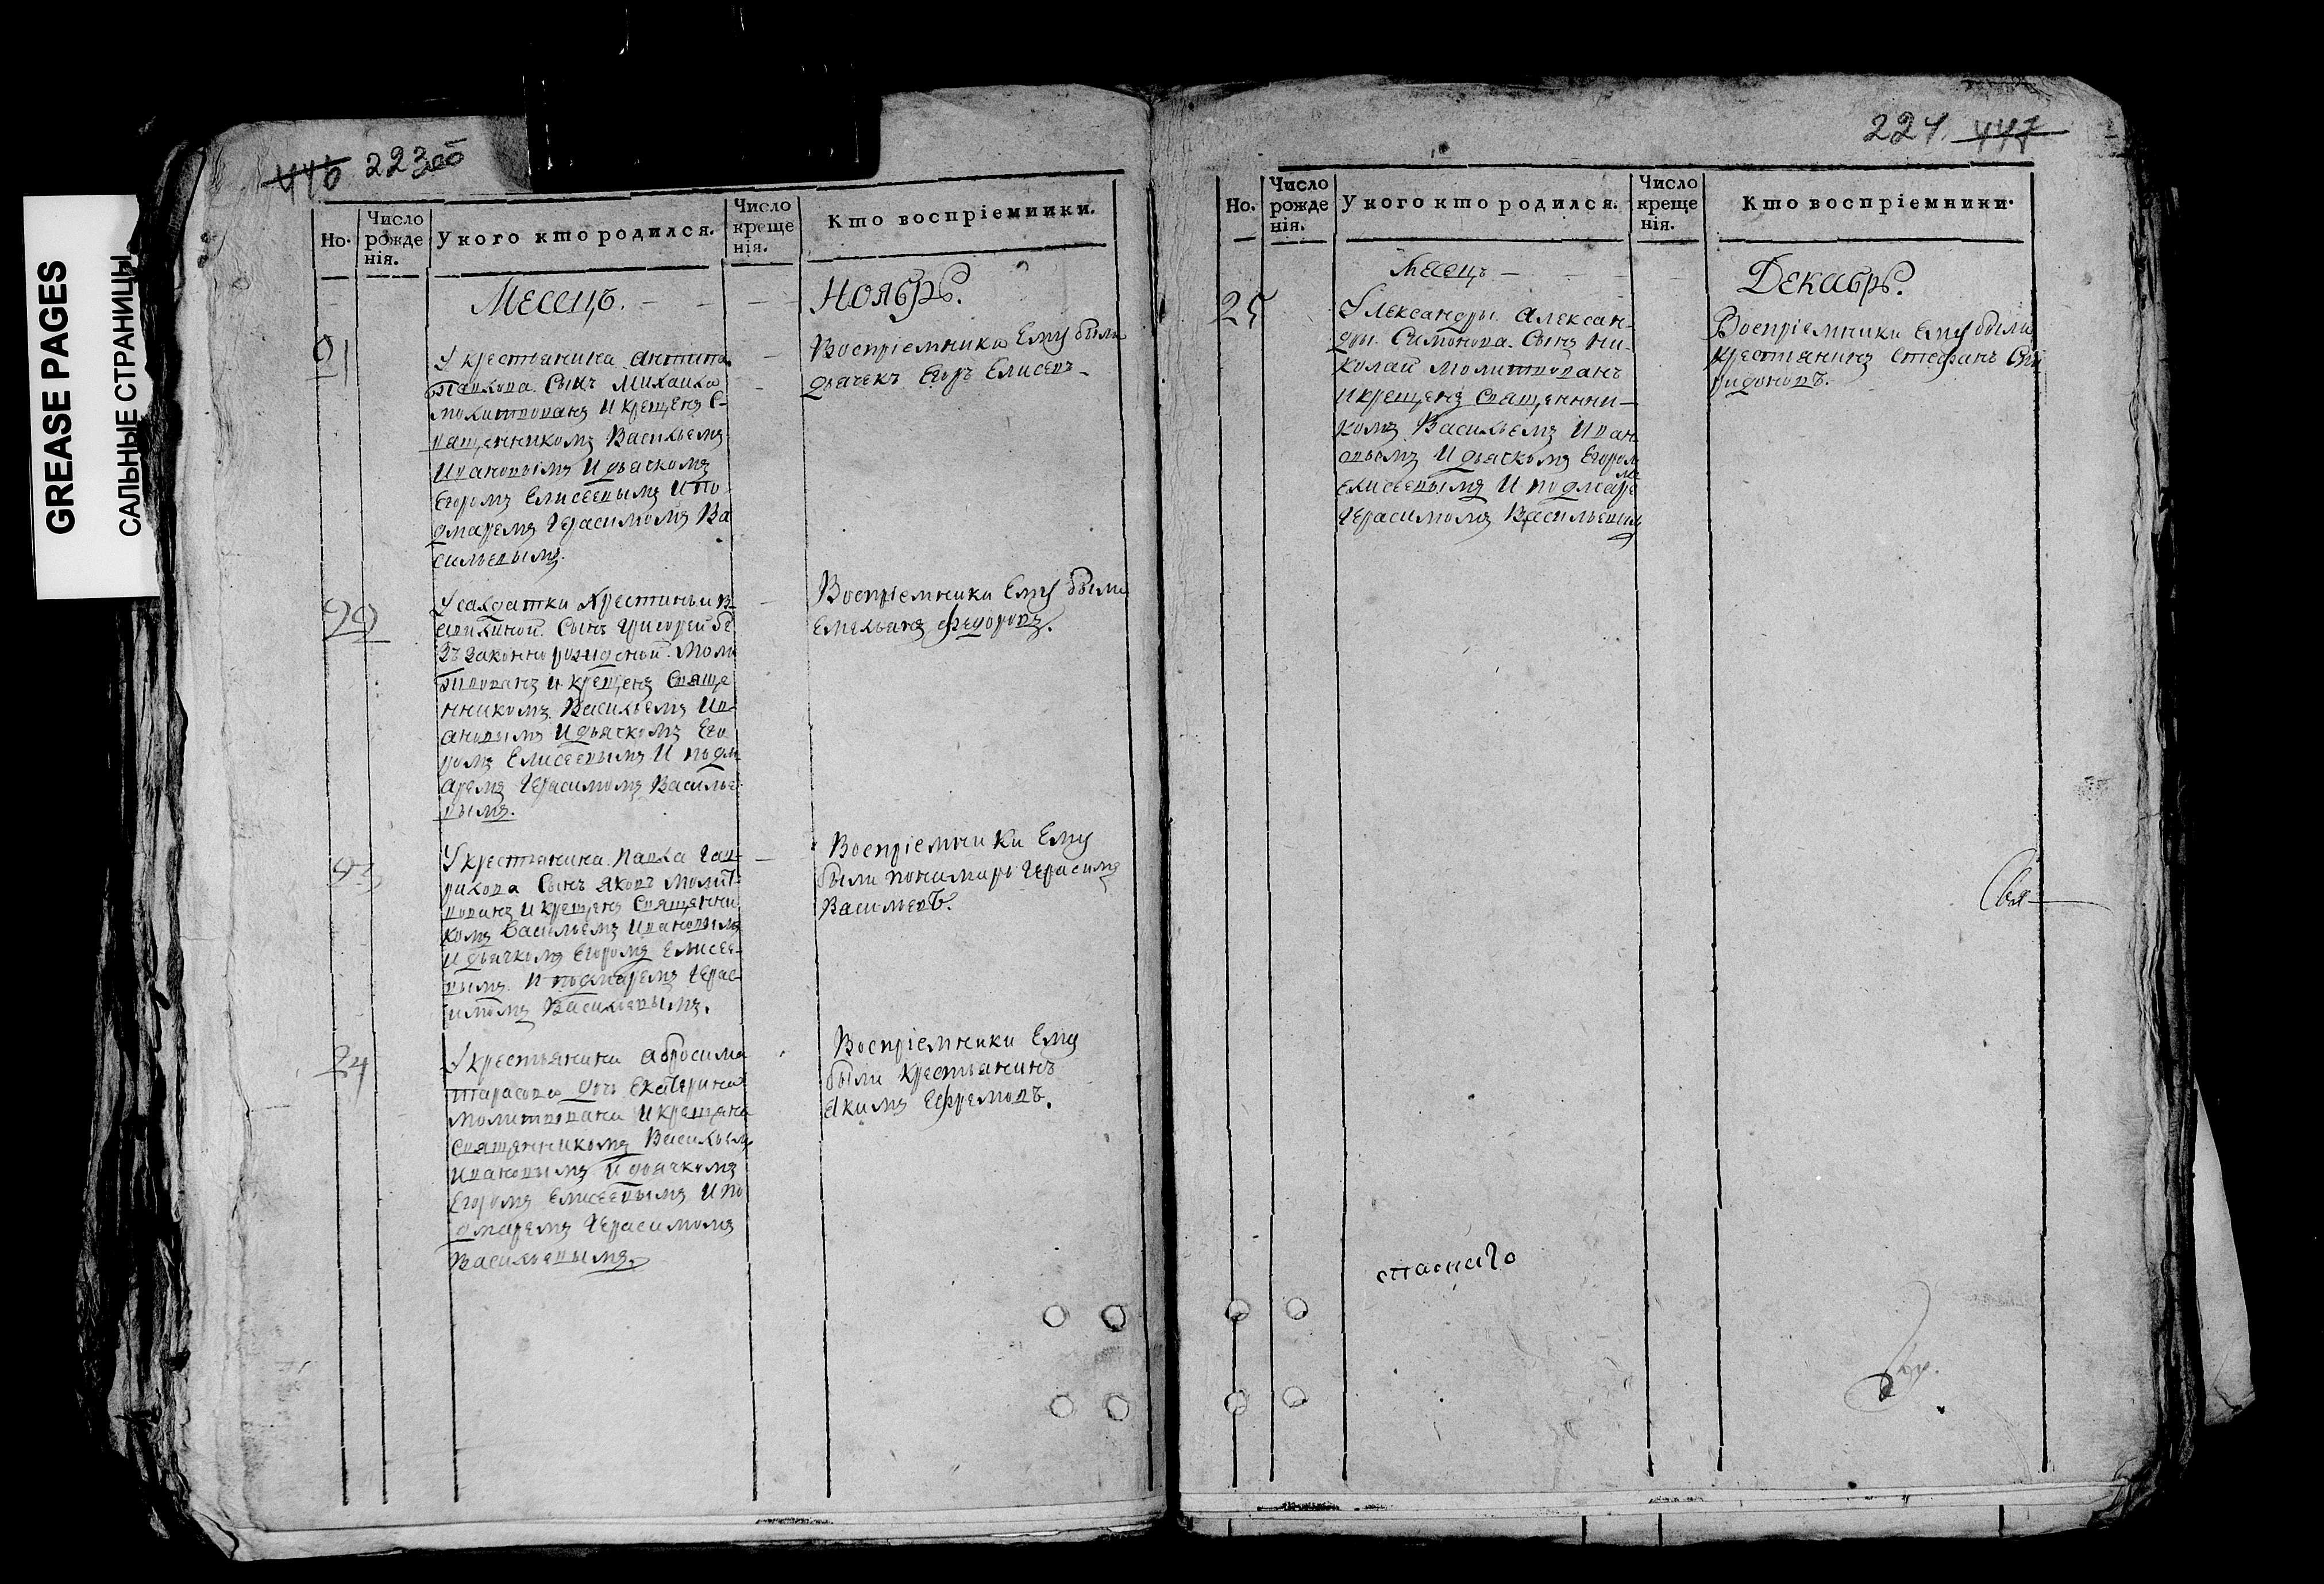 GREASE PAGES
САЛЬНЫЕ СТРАНИЦЫ
446 223об
Но.
Число рожденія.
У кого кто родился.
Число крещенія.
Кто воспріемники.
Месецъ. Ноябрь.
21
У крестьянина Антипа
Павлова Сынъ Михаила
Молитвованъ и крещенъ С-
вященникомъ Васильемъ
Ивановымъ И дьячкомъ
Егоромъ Елисеевымъ И по-
омаремъ Герасимомъ Ва
сильевымъ.
Воспріемники Ему были
дьячекъ Егоръ Елисевъ
22
У салдатки Крестиньи
Сынъ Григорей бе
зъ законно рожденой. Моли
твованъ и крещенъ Свяще
нникомъ Васильемъ Ив-
ановымъ И дьячкомъ Его
ромъ Елисеевымъ И поом
аремъ Герасимомъ Василье
вымъ.
Воспріемники Ему были
Емельянъ Федоровъ.
23
У крестьянина Павла Гав-
рилова Сынъ Яковъ Молит-
вованъ и крещенъ Священни
комъ Васильемъ Ивановымъ
И дьячкомъ Егоромъ Елисее-
вымъ И поомаремъ Герас
имомъ Васильевымъ.
Воспріемники Ему
были пономарь Герасимъ
Васильевъ.
24
У крестьянина Абросима
Тарасова дочь Екатерина
Молитвована И крещена
Священникомъ Васильемъ
Ивановымъ И дьячкомъ
Егоромъ Елисеевымъ И по
омаремъ Герасимомъ
Васильевымъ.
Воспріемники Ему
были крестьянинъ
Якимъ Ефремовъ.
224. 447
Но.
Число рожденія.
У кого кто родился.
Число крещенія.
Кто воспріемники.
Месецъ Декабрь.
25
У Лександры Алексан-
дры Симонова Сынъ Ни-
колай Молитвованъ
И крещенъ Священни-
комъ Васильемъ Иван
овымъ И дьячкомъ Егором
Елисеевымъ И поомаре
мъ
Герасимомъ Васильевым
Воспріемники Ему были
Крестьянинъ Стефанъ Спи
ридоновъ.
Свя-